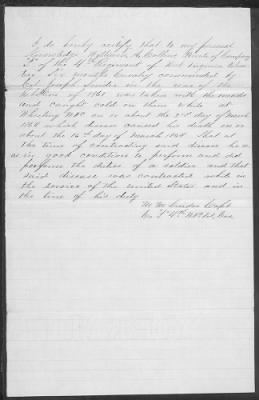 I do hereby certify that to my personal
knowledge William A. Collins Private of Company
F of the 4th Regiment of West Virginia
Six months Cavalry commanded by
Col Joseph Snider in the war of the
Rebellion of 1861 was taken with the measels
and caught cold on them while at
Wheeling WVa on or about the 2nd day of March
1864 which disease caused his death on or
about the 16th day of March 1864 that at
the time of contracting said disease he was
in good condition to perform and did
perform the duties of a soldier and that
said disease was contracted while in
the service of the United States and in
the line of his duty
Capt
Co F 4th WVa Vol Cav